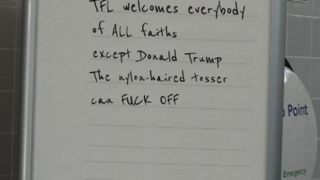 TFL welcomes everybody
of ALL faiths
except Donald Trump
The nylon-haired tosser
can FUCK OFF
Point
Emergency